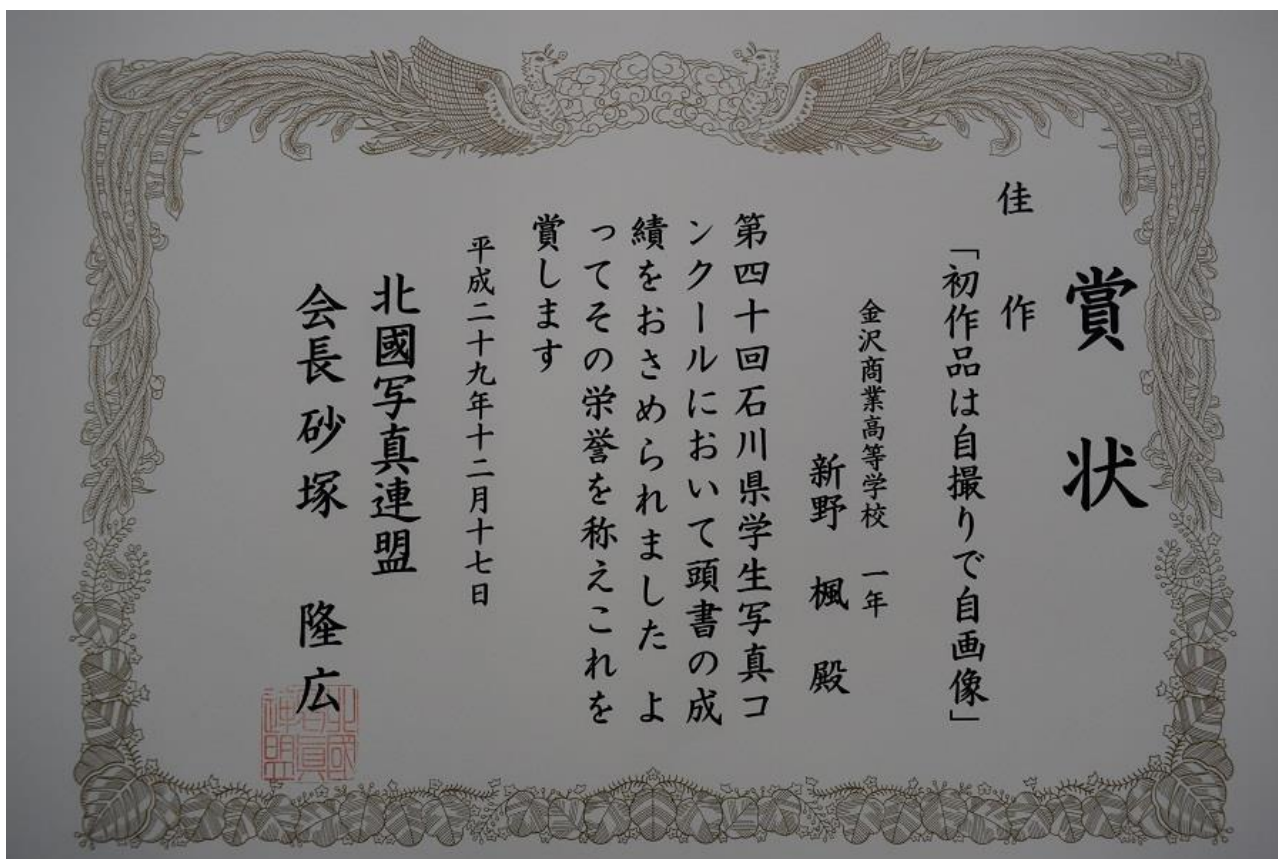 賞状
佳作
「初作品は自撮りで自画像」
金沢商業高等学校 一年
新野 楓 殿
第四十回石川県学生写真コ
ンクールにおいて頭書の成
績をおさめられました よ
ってその栄誉を称えこれを
賞します
平成二十九年十二月十七日
北國写真連盟
会長 砂塚 隆広
北國写真連盟